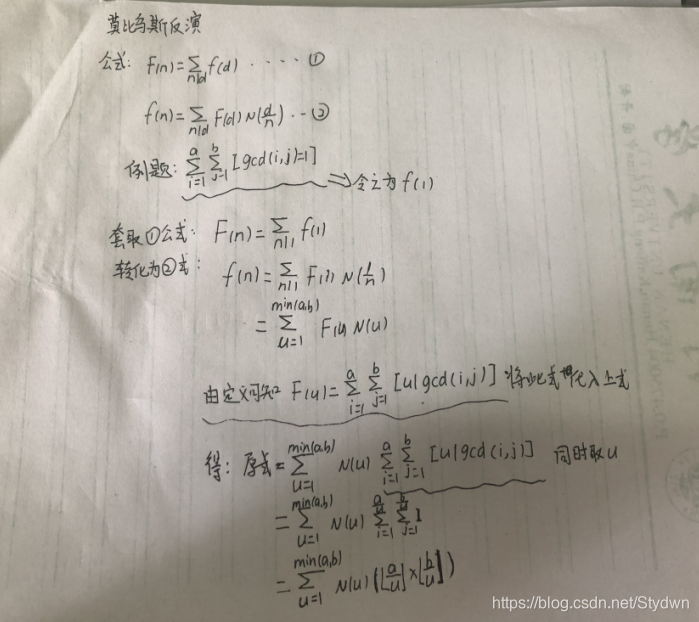 莫比乌斯反演
公式: F(n)=∑_{n|d} f(d) ····①
f(n)=∑_{n|d} F(d) μ(d/n) ··②
例题: ∑_{i=1}^{a} ∑_{j=1}^{b} [gcd(i,j)=1] ⇒ 令之为 f(1)
套取①公式: F(n)=∑_{n|1} f(1)
转化为②式: f(n)=∑_{n|1} F(1) μ(1/n)
=∑_{u=1}^{min(a,b)} F(u) μ(u)
由定义可知 F(u)=∑_{i=1}^{a} ∑_{j=1}^{b} [u|gcd(i,j)] 将此式代入上式
得: 原式=∑_{u=1}^{min(a,b)} μ(u) ∑_{i=1}^{a} ∑_{j=1}^{b} [u|gcd(i,j)] 同时取u
=∑_{u=1}^{min(a,b)} μ(u) ∑_{i=1}^{a/u} ∑_{j=1}^{b/u} 1
=∑_{u=1}^{min(a,b)} μ(u) (⌊a/u⌋×⌊b/u⌋)
https://blog.csdn.net/Stydwn